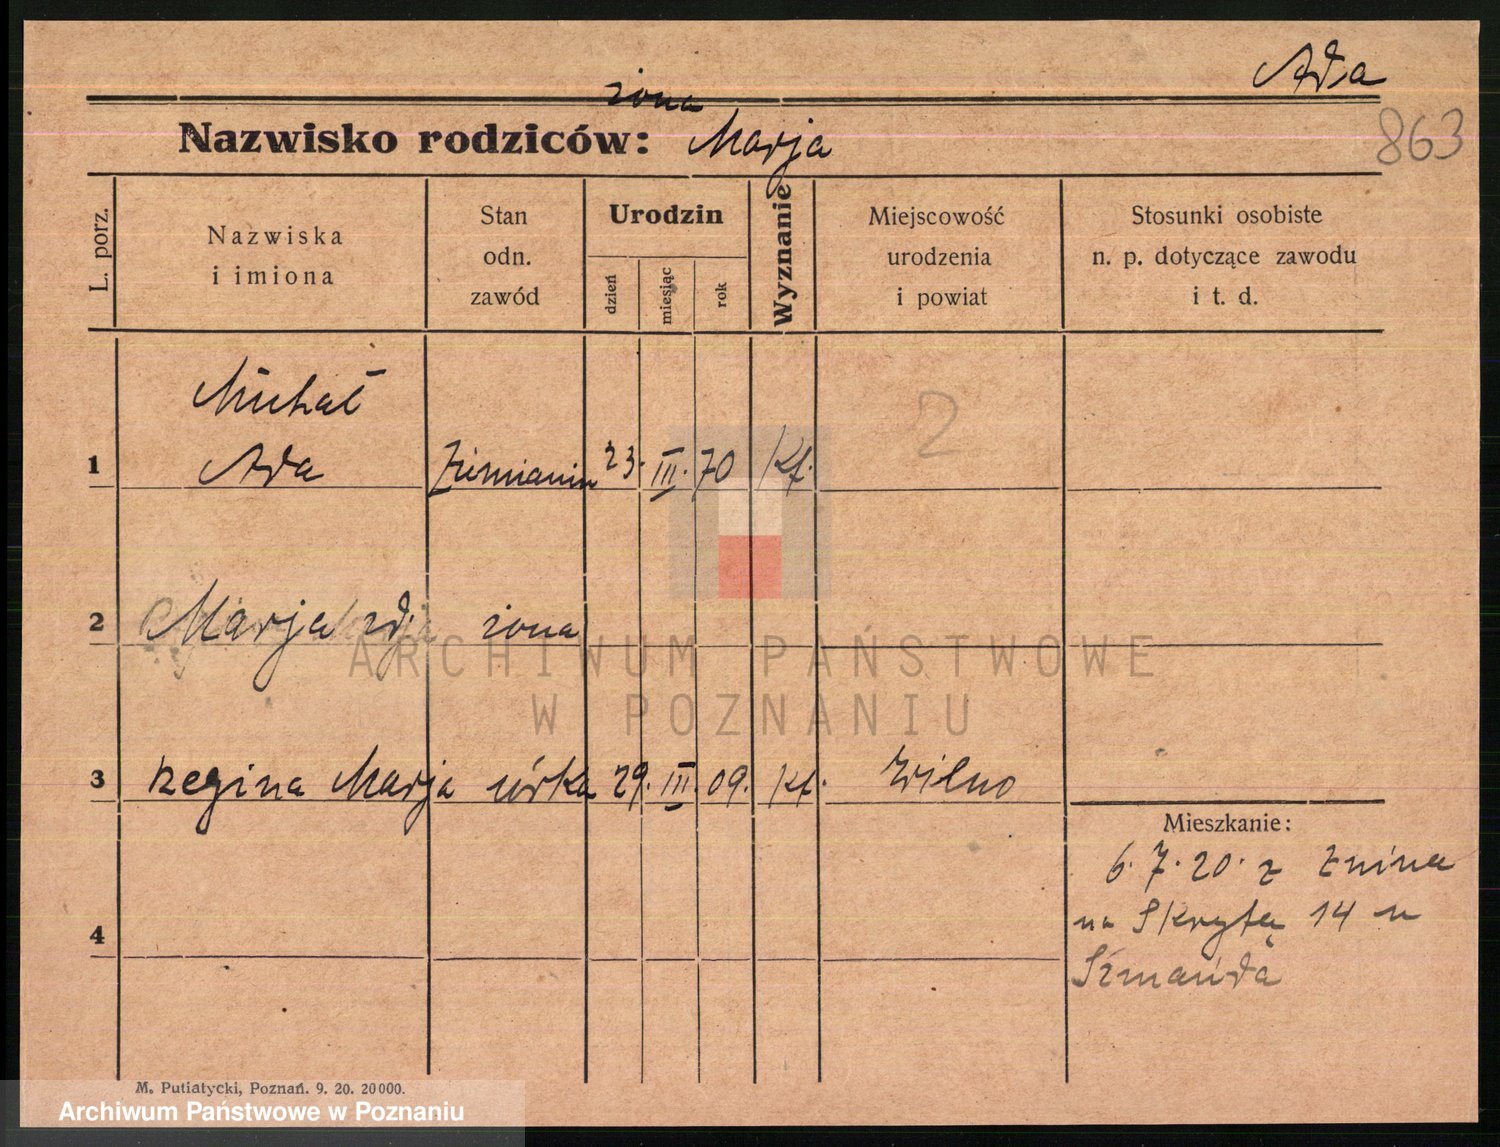 Ada
żona
Nazwisko rodziców: Marja
863
L. porz.
Nazwiska
i imiona
Stan
odn.
zawód
Urodzin
dzień
miesiąc
rok
Wyznanie
Miejscowość
urodzenia
i powiat
Stosunki osobiste
n. p. dotyczące zawodu
i t. d.
2
Michał
1 Ada Ziemianin 23. III. 70 Kf.
2 Marja żona
3 Regina Marja córka 29. III. 09. Kf. Wilno
Mieszkanie:
6. 7. 20. z Żnina
na Skrytą 14 u
4
Szmańda
ARCHIWUM PAŃSTWOWE
W POZNANIU
M. Putiatycki, Poznań. 9. 20. 20000.
Archiwum Państwowe w Poznaniu